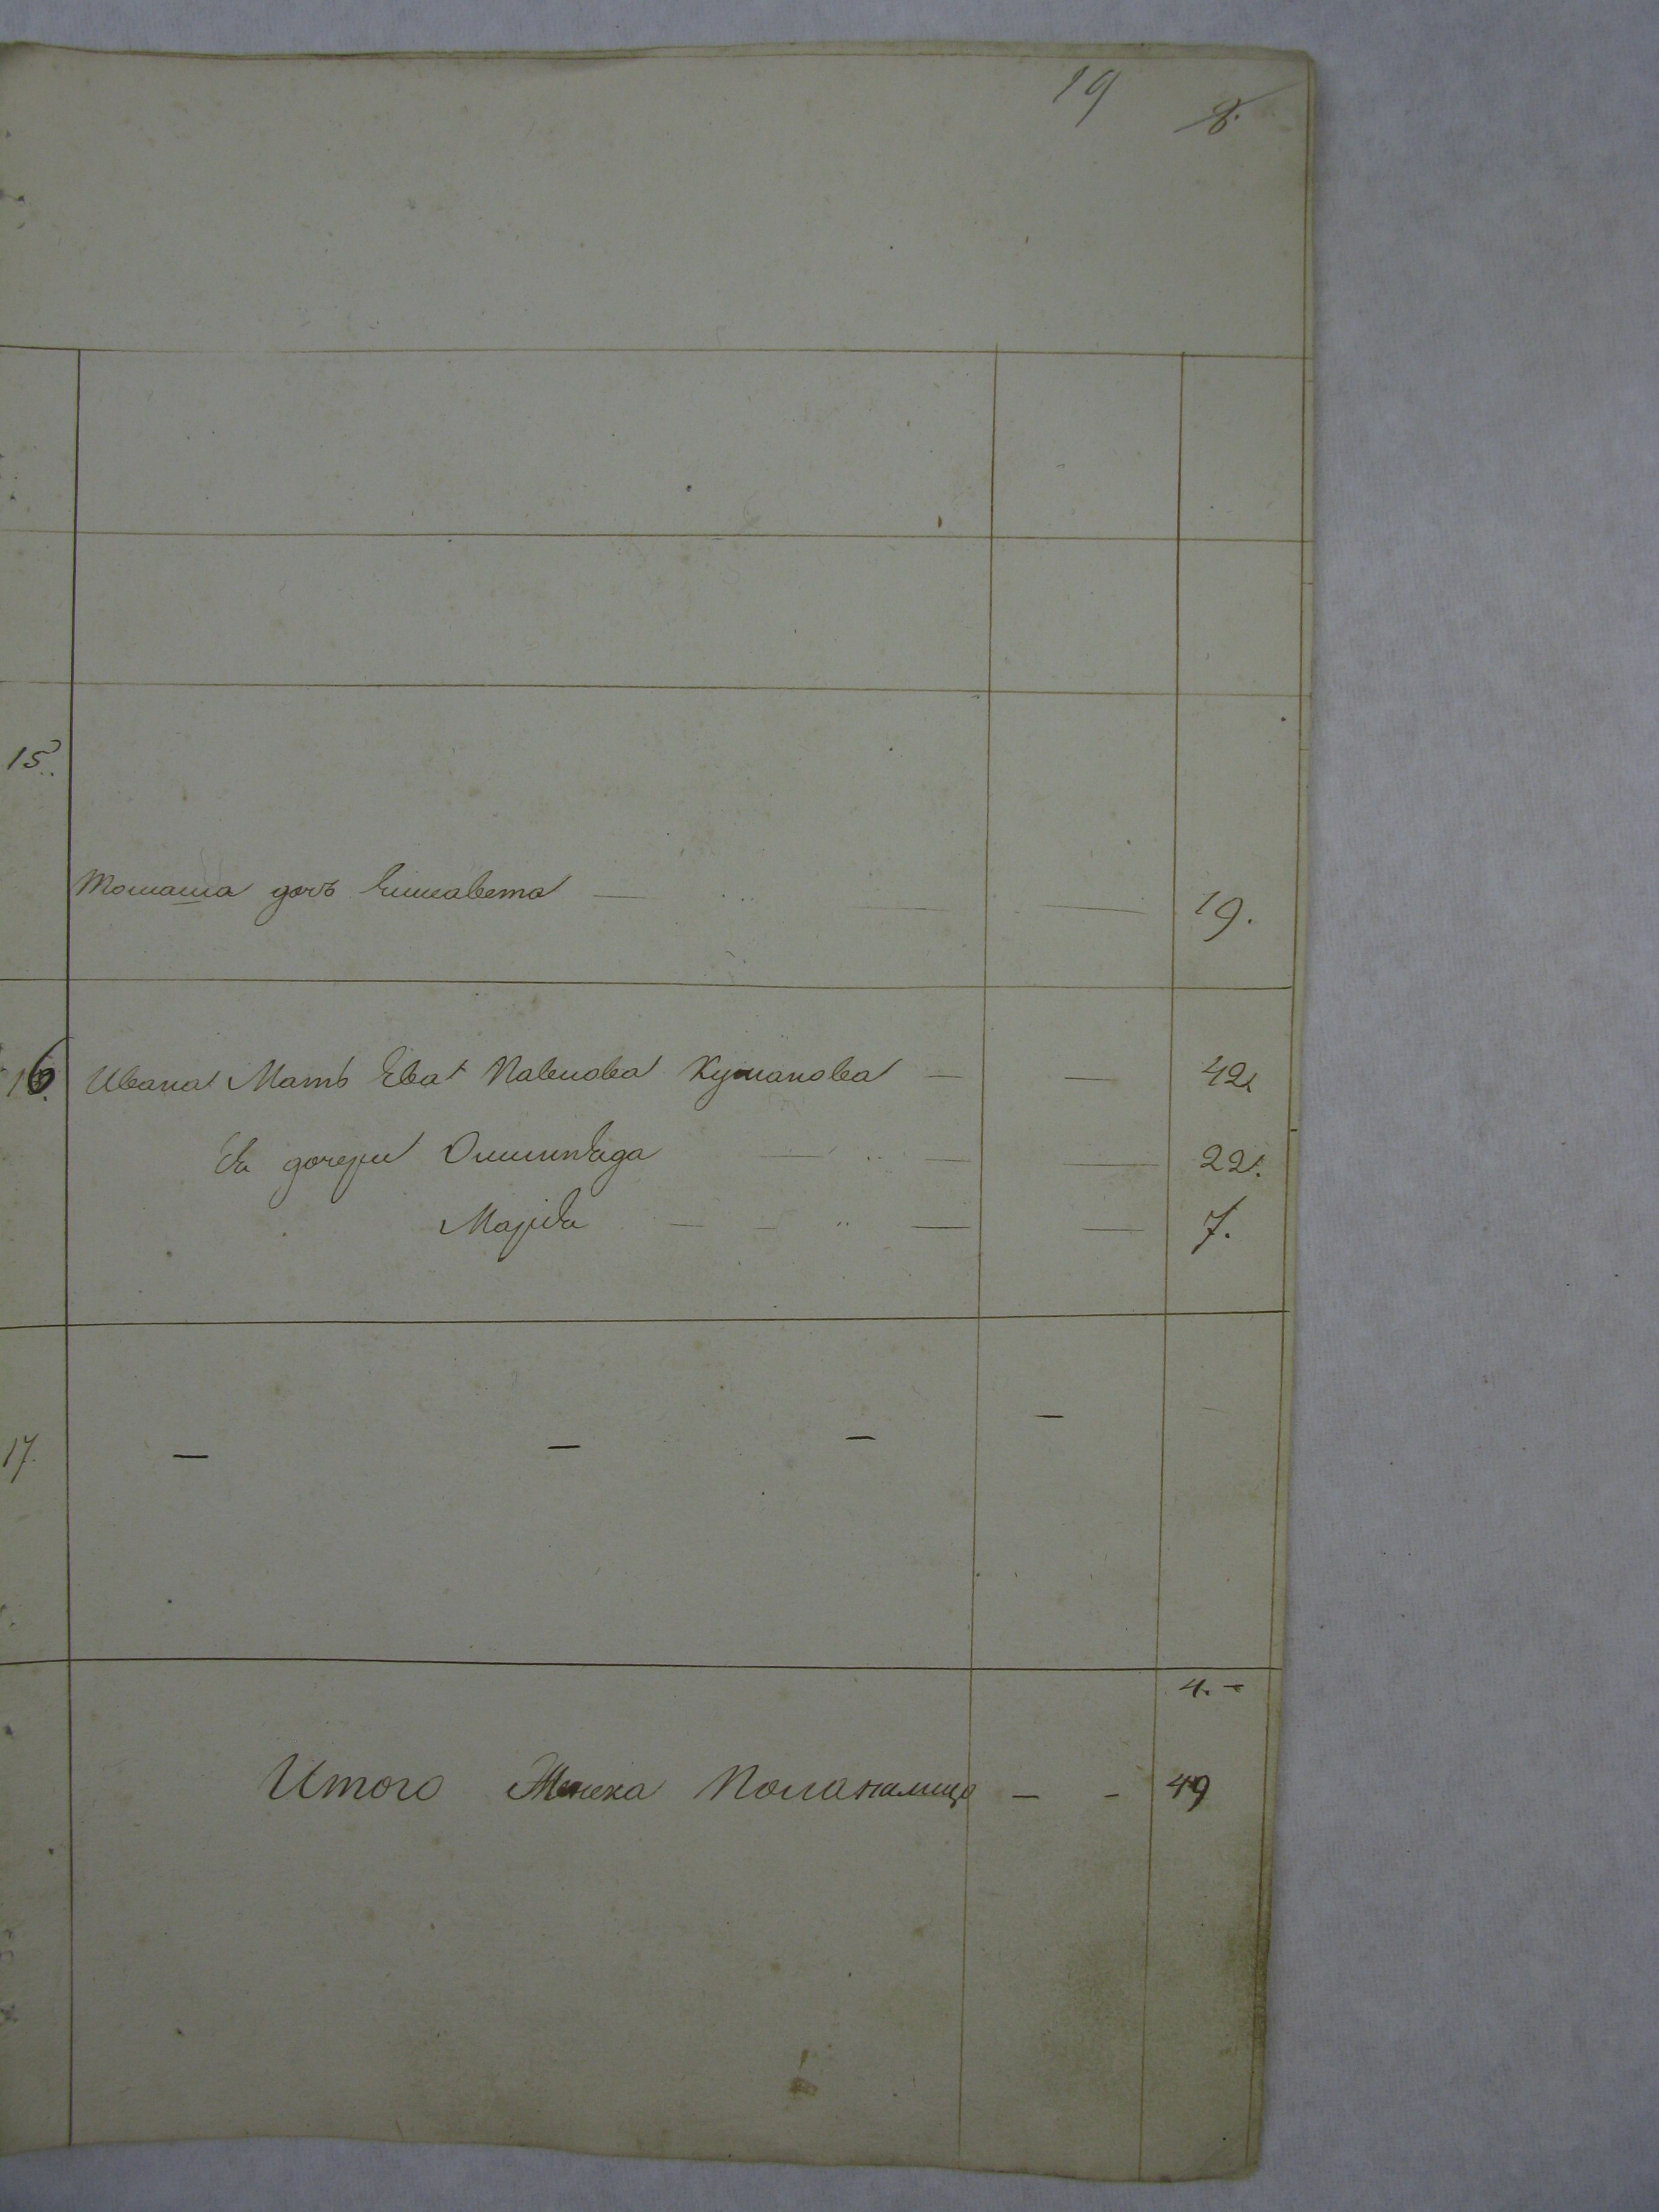 19 8.
15.
Томаша дочь Елисавета — — — 19.
16. Ивана Мать Ева Павлова — — 42.
Ея дочери — — — 22.
Марiя — — — — 7.
17. — — — —
4. -
Итого Женска Пола налицо — - 49